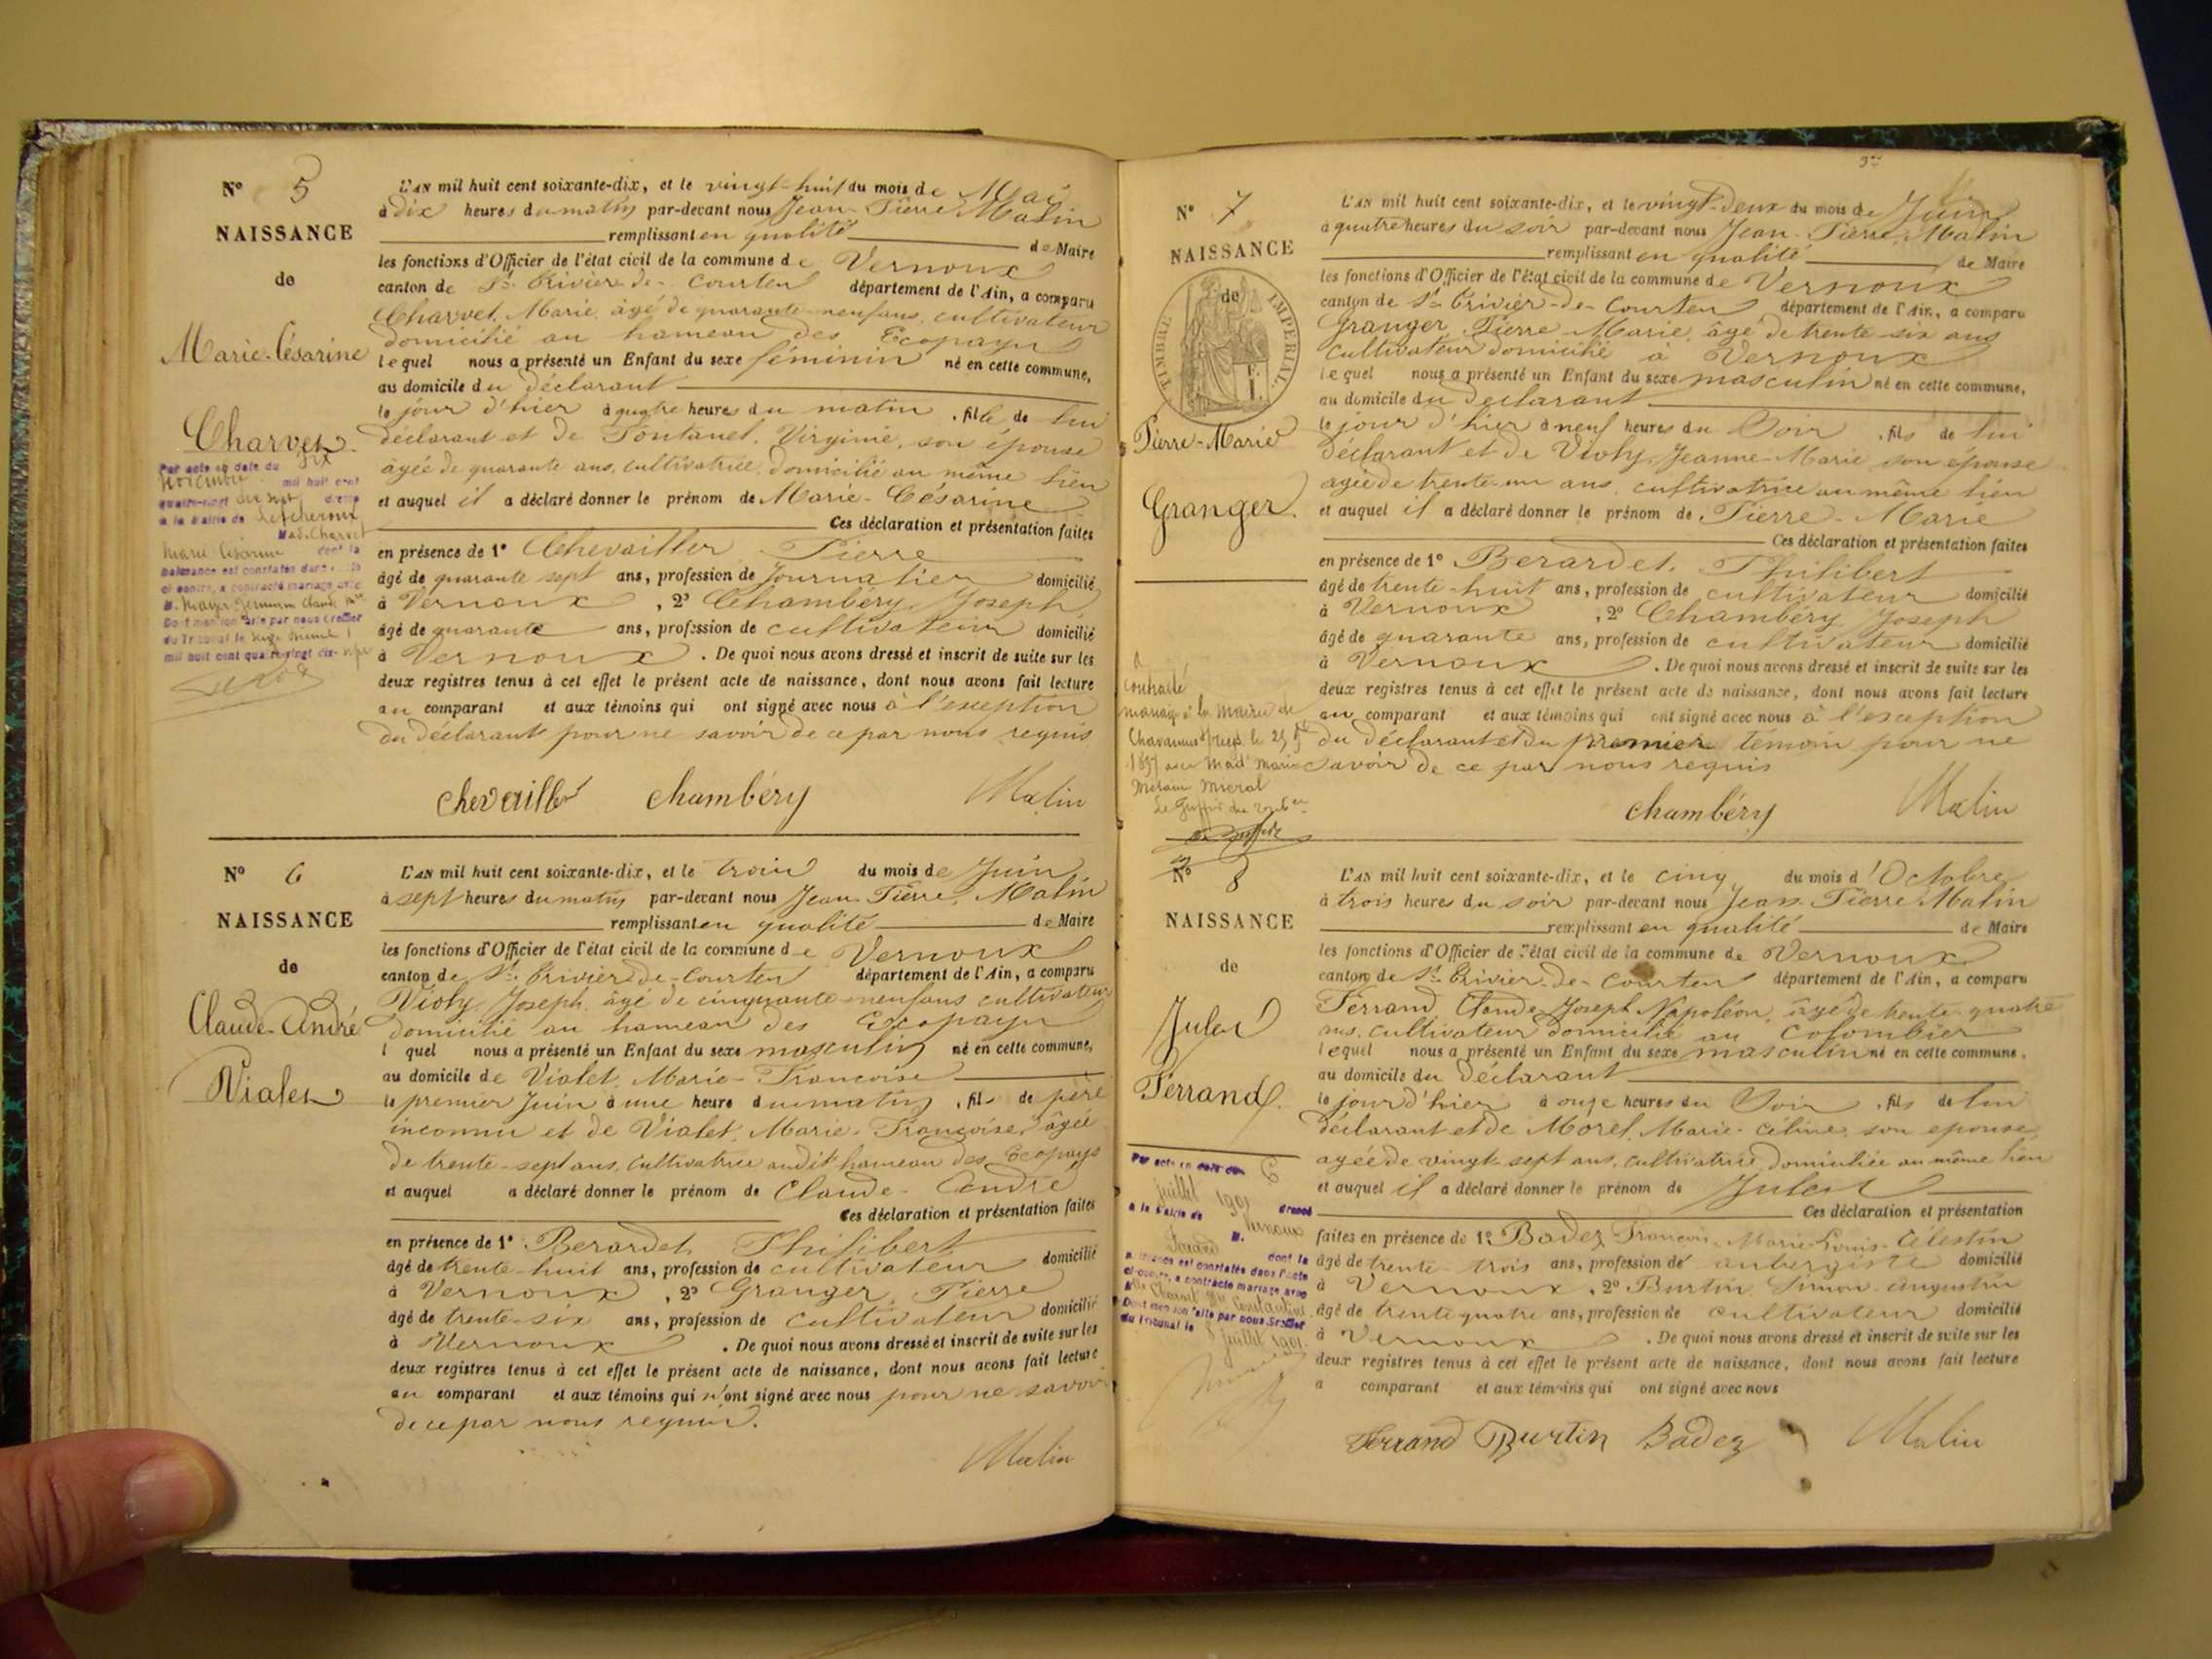 N° 5
NAISSANCE
de
Marie-Césarine
Charvet
Par acte en date du six
Novembre mil huit cent
quatre-vingt dix sept dressé
à la Mairie de Lescheroux
Mad. Charvet
Marie Césarine dont la
naissance est constatée dans
ci-contre, a contracté mariage avec
M. Mayer Germain Claude
Dont mention faite par nous Greffier
du Tribunal le
mil huit cent quatre-vingt dix-sept
L'AN mil huit cent soixante-dix, et le vingt-huit du mois de Mai
à dix heures du matin par-devant nous Jean-Pierre Malin
remplissant en qualité de Maire
les fonctions d'Officier de l'état civil de la commune de Vernoux
canton de St Trivier-de-Courtes département de l'Ain, a comparu
Charvet, Marie, âgé de quarante-neuf ans, cultivateur
domicilié au hameau des Ecopays
lequel nous a présenté un Enfant du sexe féminin né en cette commune,
au domicile du déclarant
le jour d'hier à quatre heures du matin, fille de lui
déclarant et de Pontanel, Virginie, son épouse
âgée de quarante ans, cultivatrice, domicilié au même lieu
et auquel il a déclaré donner le prénom de Marie-Césarine
Ces déclaration et présentation faites
en présence de 1° Chevailler Pierre
âgé de quarante sept ans, profession de Journalier domicilié
à Vernoux, 2° Chambéry, Joseph
âgé de quarante ans, profession de cultivateur domicilié
à Vernoux. De quoi nous avons dressé et inscrit de suite sur les
deux registres tenus à cet effet le présent acte de naissance, dont nous avons fait lecture
au comparant et aux témoins qui ont signé avec nous à l'exception
du déclarant pour ne savoir de ce par nous requis
Chevailler Chambéry Malin
N° 6
NAISSANCE
de
Claude-André
Vialet
L'AN mil huit cent soixante-dix, et le trois du mois de Juin
à sept heures du matin par-devant nous Jean-Pierre Malin
remplissant en qualité de Maire
les fonctions d'Officier de l'état civil de la commune de Vernoux
canton de St Trivier-de-Courtes département de l'Ain, a comparu
Violy, Joseph, âgé de cinquante-neuf ans cultivateur
domicilié au hameau des Ecopays
l quel nous a présenté un Enfant du sexe masculin né en cette commune,
au domicile de Vialet, Marie-Françoise
le premier Juin à une heure du matin, fils de père
inconnu et de Vialet, Marie-Françoise, âgée
de trente-sept ans, cultivatrice audit hameau des Ecopays
et auquel a déclaré donner le prénom de Claude-André
Ces déclaration et présentation faites
en présence de 1° Berardet Philibert
âgé de trente-huit ans, profession de cultivateur domicilié
à Vernoux, 2° Granger, Pierre
âgé de trente-six ans, profession de cultivateur domicilié
à Vernoux. De quoi nous avons dressé et inscrit de suite sur les
deux registres tenus à cet effet le présent acte de naissance, dont nous avons fait lecture
au comparant et aux témoins qui n'ont signé avec nous pour ne savoir
de ce par nous requis.
Malin
N° 7
NAISSANCE
de
TIMBRE IMPERIAL
Pierre-Marie
Granger
a
contracté
mariage à la Mairie de
Chavannes le 25
1897 avec Mad. Marie
Le Greffier du
L'AN mil huit cent soixante-dix, et le vingt-deux du mois de Juin
à quatre heures du soir par-devant nous Jean-Pierre Malin
remplissant en qualité de Maire
les fonctions d'Officier de l'état civil de la commune de Vernoux
canton de St Trivier-de-Courtes département de l'Ain, a comparu
Granger, Pierre-Marie, âgé de trente-six ans
cultivateur domicilié à Vernoux
lequel nous a présenté un Enfant du sexe masculin né en cette commune,
au domicile du déclarant
le jour d'hier à neuf heures du Soir, fils de lui
déclarant et de Violy, Jeanne-Marie son épouse
âgée de trente-un ans, cultivatrice au même lieu
et auquel il a déclaré donner le prénom de Pierre-Marie
Ces déclaration et présentation faites
en présence de 1° Berardet, Philibert
âgé de trente-huit ans, profession de cultivateur domicilié
à Vernoux, 2° Chambéry, Joseph
âgé de quarante ans, profession de cultivateur domicilié
à Vernoux. De quoi nous avons dressé et inscrit de suite sur les
deux registres tenus à cet effet le présent acte de naissance, dont nous avons fait lecture
au comparant et aux témoins qui ont signé avec nous à l'exception
du déclarant et du premier témoin pour ne
savoir de ce par nous requis
Chambéry Malin
N° 8
NAISSANCE
de
Jules
Ferrand
Par acte en date du 6
juillet 1901 dressé
à la Mairie de Vernoux
M. Ferrand dont la
naissance est constatée dans l'acte
ci-contre, a contracté mariage avec
Dont mention faite par nous Greffier
du Tribunal le 8 juillet 1901.
L'AN mil huit cent soixante-dix, et le cinq du mois d'Octobre
à trois heures du soir par-devant nous Jean-Pierre Malin
remplissant en qualité de Maire
les fonctions d'Officier de l'état civil de la commune de Vernoux
canton de St Trivier-de-Courtes département de l'Ain, a comparu
Ferrand, Claude Joseph Napoléon, âgé de trente-quatre
ans, cultivateur domicilié au Colombier
lequel nous a présenté un Enfant du sexe masculin né en cette commune,
au domicile du déclarant
le jour d'hier à onze heures du Soir, fils de lui
déclarant et de Morel, Marie-Céline, son épouse,
âgée de vingt-sept ans, cultivatrice, domiciliée au même lieu
et auquel il a déclaré donner le prénom de Jules
Ces déclaration et présentation
faites en présence de 1° Badez François-Marie Louis-Célestin
âgé de trente-trois ans, profession de aubergiste domicilié
à Vernoux, 2° Burtin Simon-Augustin
âgé de trente quatre ans, profession de cultivateur domicilié
à Vernoux. De quoi nous avons dressé et inscrit de suite sur les
deux registres tenus à cet effet le présent acte de naissance, dont nous avons fait lecture
a comparant et aux témoins qui ont signé avec nous
Ferrand Burtin Badez Malin